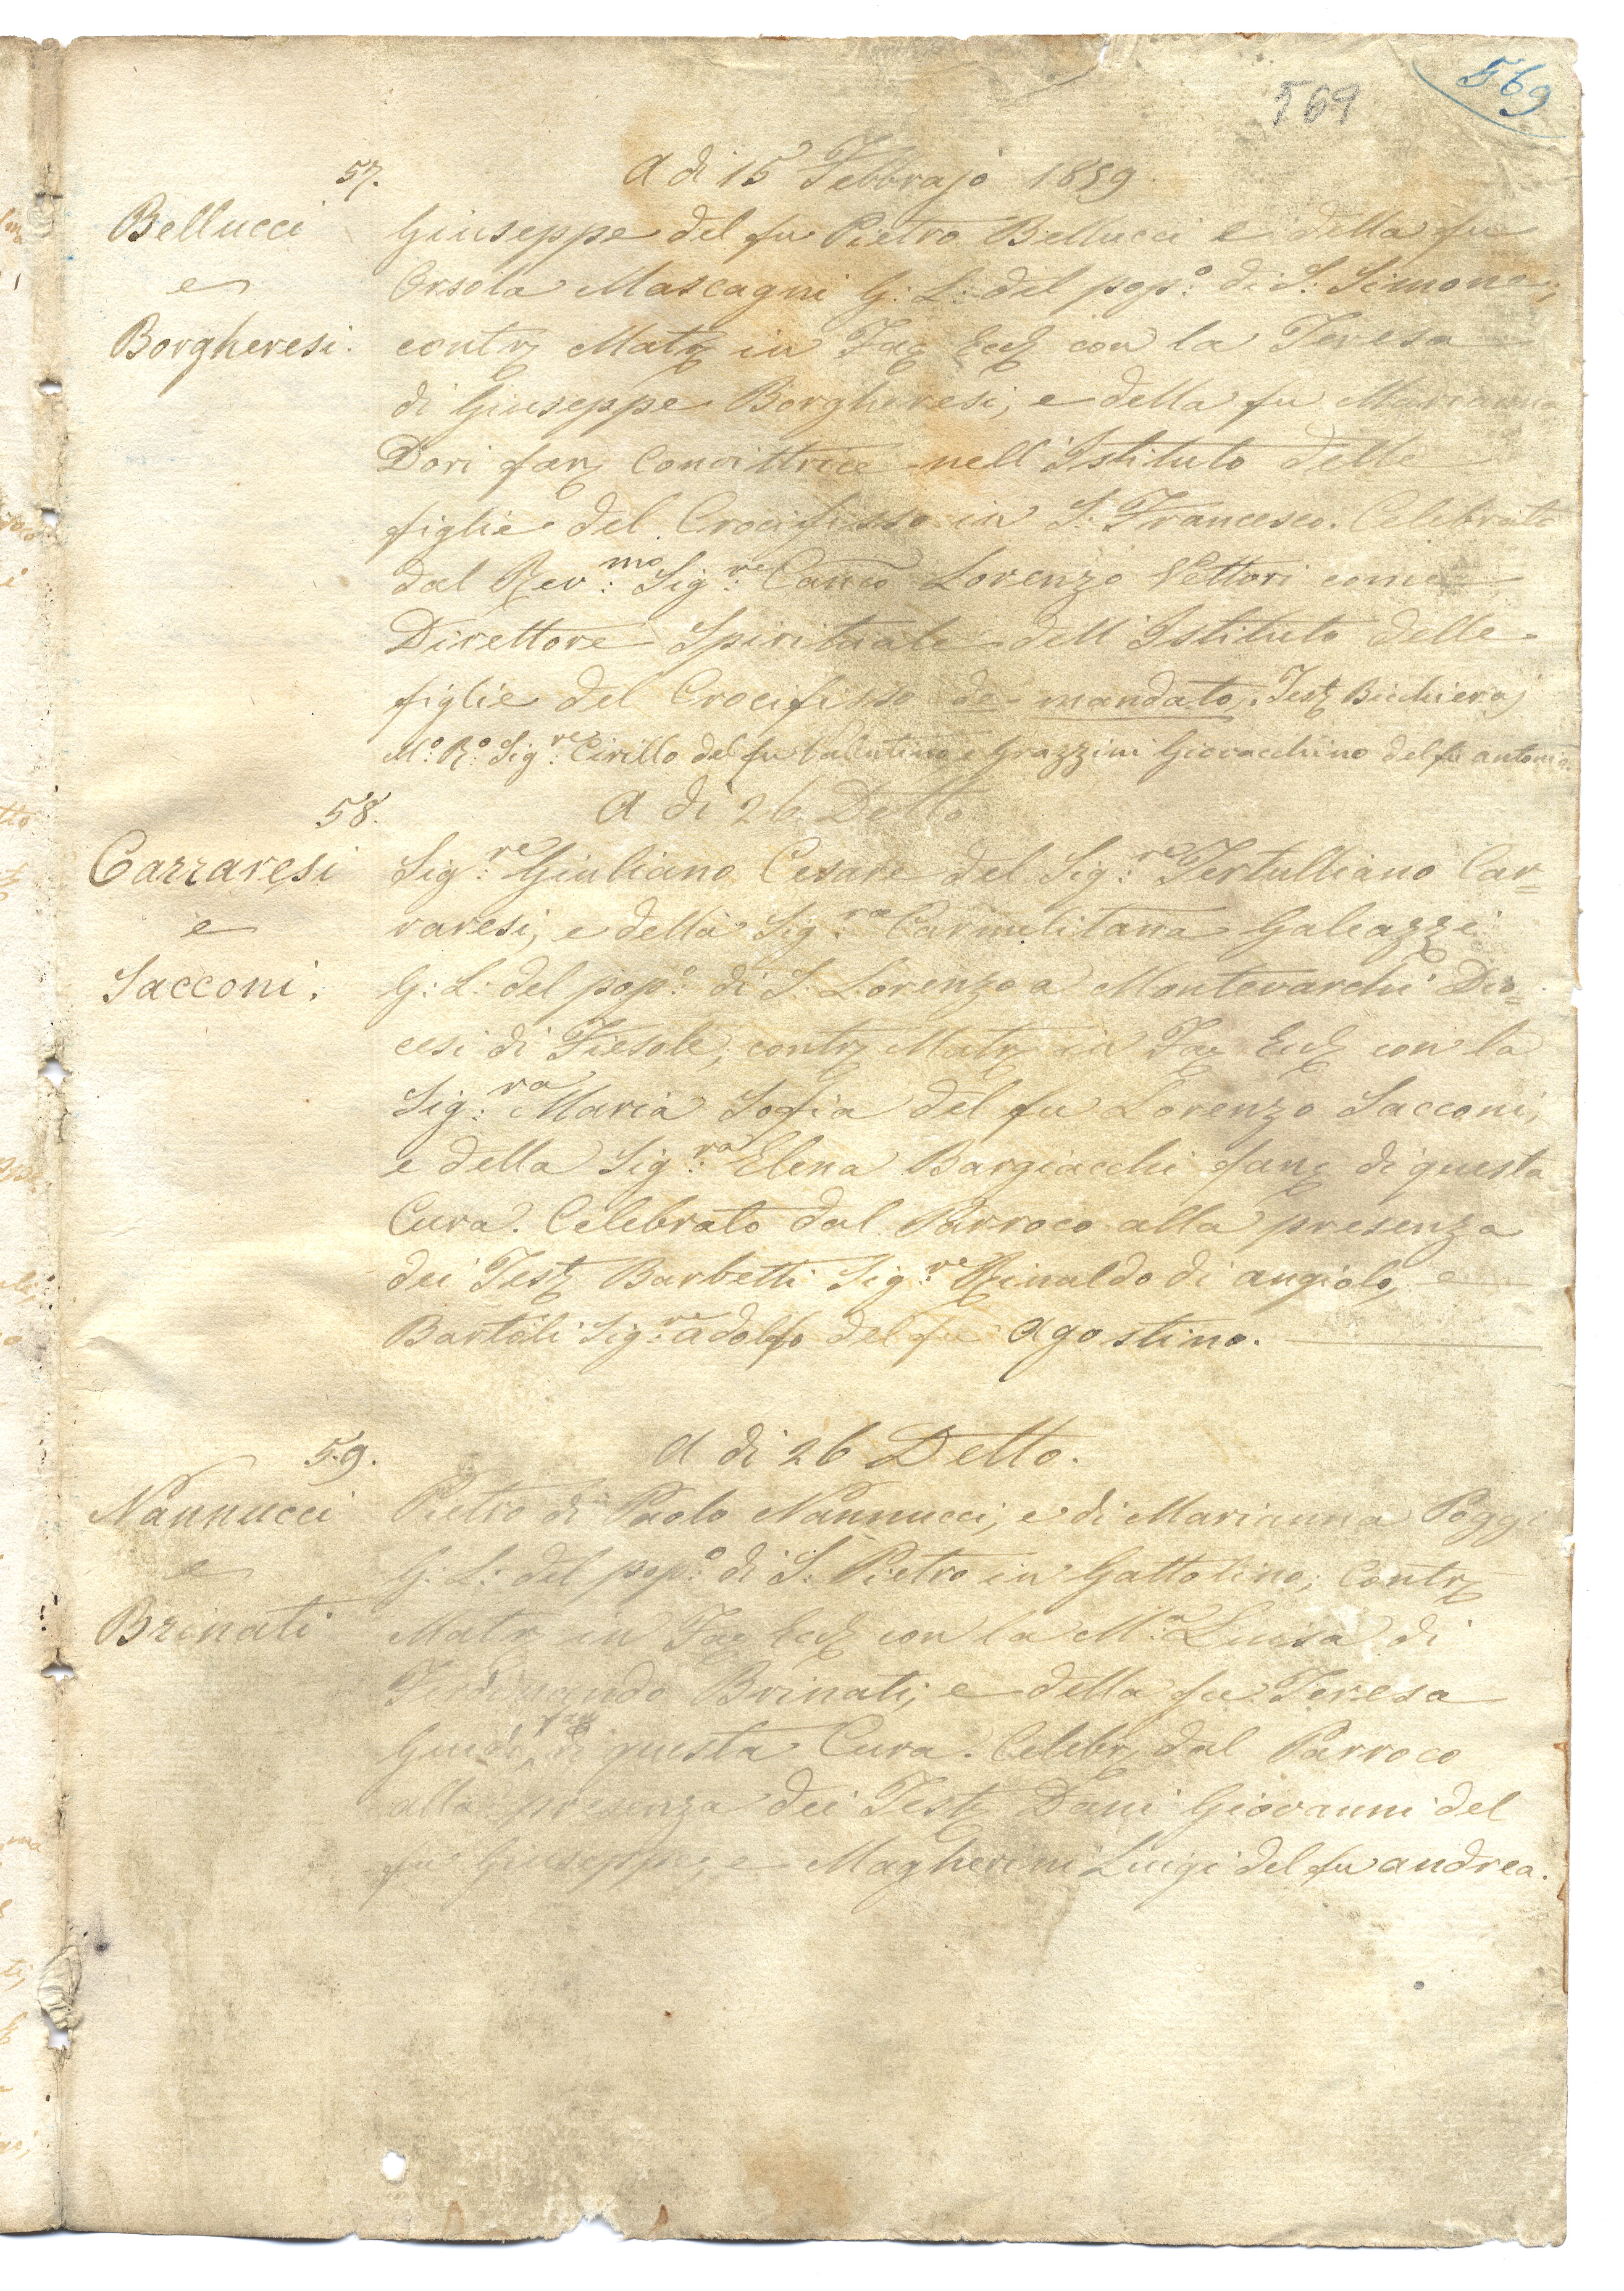 569
569
57.
A dì 15 Febbrajo 1859.
Bellucci
e
Borgheresi.
Giuseppe del fu Pietro Bellucci e della fu
Orsola Mascagni G: L: del pop:º di S: Simone;
contr Matr in Fac Eccl con la Teresa
di Giuseppe Borgheresi, e della fu Marianna
Dori fan Convittrice nell'Istituto delle
figlie del Crocifisso in S: Francesco. Celebrato
dal Rev:mo Sig:re Canco Lorenzo Vettori come
Direttore Spirituale dell'Istituto delle
figlie del Crocifisso de mandato. Test Bicchieraj
M:º R:º Sig:re Cirillo del fu Valentino e Grazzini Giovacchino del fu Antonio.
58.
A dì 26 Detto
Carraresi
e
Sacconi.
Sig:re Giuliano Cesare del Sig:re Tertulliano Car=
raresi, e della Sig:ra Carmelitana Galeazzi
G: L: del pop:º di S: Lorenzo a Montevarchi Dio=
cesi di Fiesole, contr Matr in Fac Eccl con la
Sig:ra Maria Sofia del fu Lorenzo Sacconi,
e della Sig:ra Elena Bargiacchi fanc di questa
Cura. Celebrato dal Parroco alla presenza
dei Test Barbetti Sig:re Rinaldo di Angiolo, e
Bartoli Sig:re Adolfo del fu Agostino.
59.
A dì 26 Detto.
Nannucci
e
Brinati
Pietro di Paolo Nannucci, e di Marianna Poggi
G: L: del pop:º di S: Pietro in Gattolino; Contr
Matr in Fac Eccl con la M:a Luisa di
Ferdinando Brinati, e della fu Teresa
Guidi fan di questa Cura. Celebr dal Parroco
alla presenza dei Test Dani Giovanni del
fu Giuseppe, e Magherini Luigi del fu Andrea.